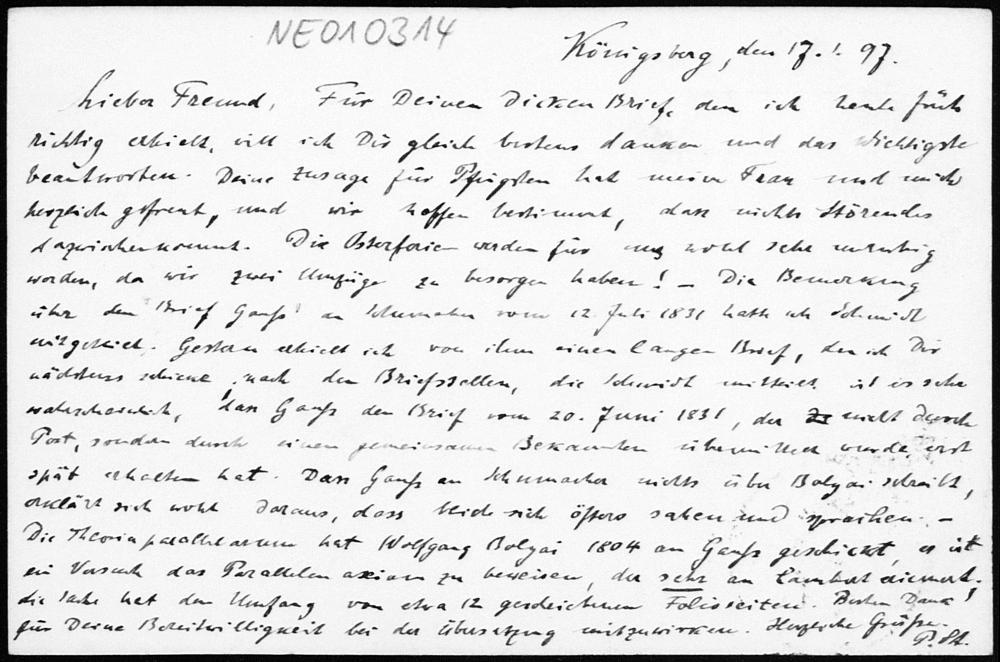 NE010314
Königsberg, den 17.1.97.
Lieber Freund, Für Deinen dicken Brief, den ich heute früh
richtig erhielt, will ich Dir gleich bestens danken und das Wichtigste
beantworten. Deine Zusage für Pfingsten hat meine Frau und mich
herzlich gefreut, und wir hoffen bestimmt, dass nichts Störendes
dazwischenkommt. Die Osterferien werden für uns wohl sehr unruhig
werden, da wir zwei Umzüge zu besorgen haben! – Die Bemerkung
über den Brief Gauß' an Schumacher vom 12. Juli 1831 hatte ich Schmidt
mitgeteilt. Gestern erhielt ich von ihm einen langen Brief, den ich Dir
nächstens schicke, nach den Briefstellen, die Schmidt mitteilt, ist es sehr
wahrscheinlich, dass Gauß den Brief vom 20. Juni 1831, der nicht durch
Post, sondern durch einen gemeinsamen Bekannten übermittelt wurde, erst
spät erhalten hat. Dass Gauß an Schumacher nichts über Bolyai schreibt,
erklärt sich wohl daraus, dass beide sich öfters sahen und sprachen. –
Die Theoria parallelarum hat Wolfgang Bolyai 1804 an Gauß geschickt, es ist
ein Versuch das Parallelenaxiom zu beweisen, der sehr an Lambert erinnert.
die Sache hat den Umfang von etwa 12 geschriebenen Folioseiten. Besten Dank!
für Deine Bereitwilligkeit bei der Übersetzung mitzuwirken. Herzliche Grüße.
P. St.